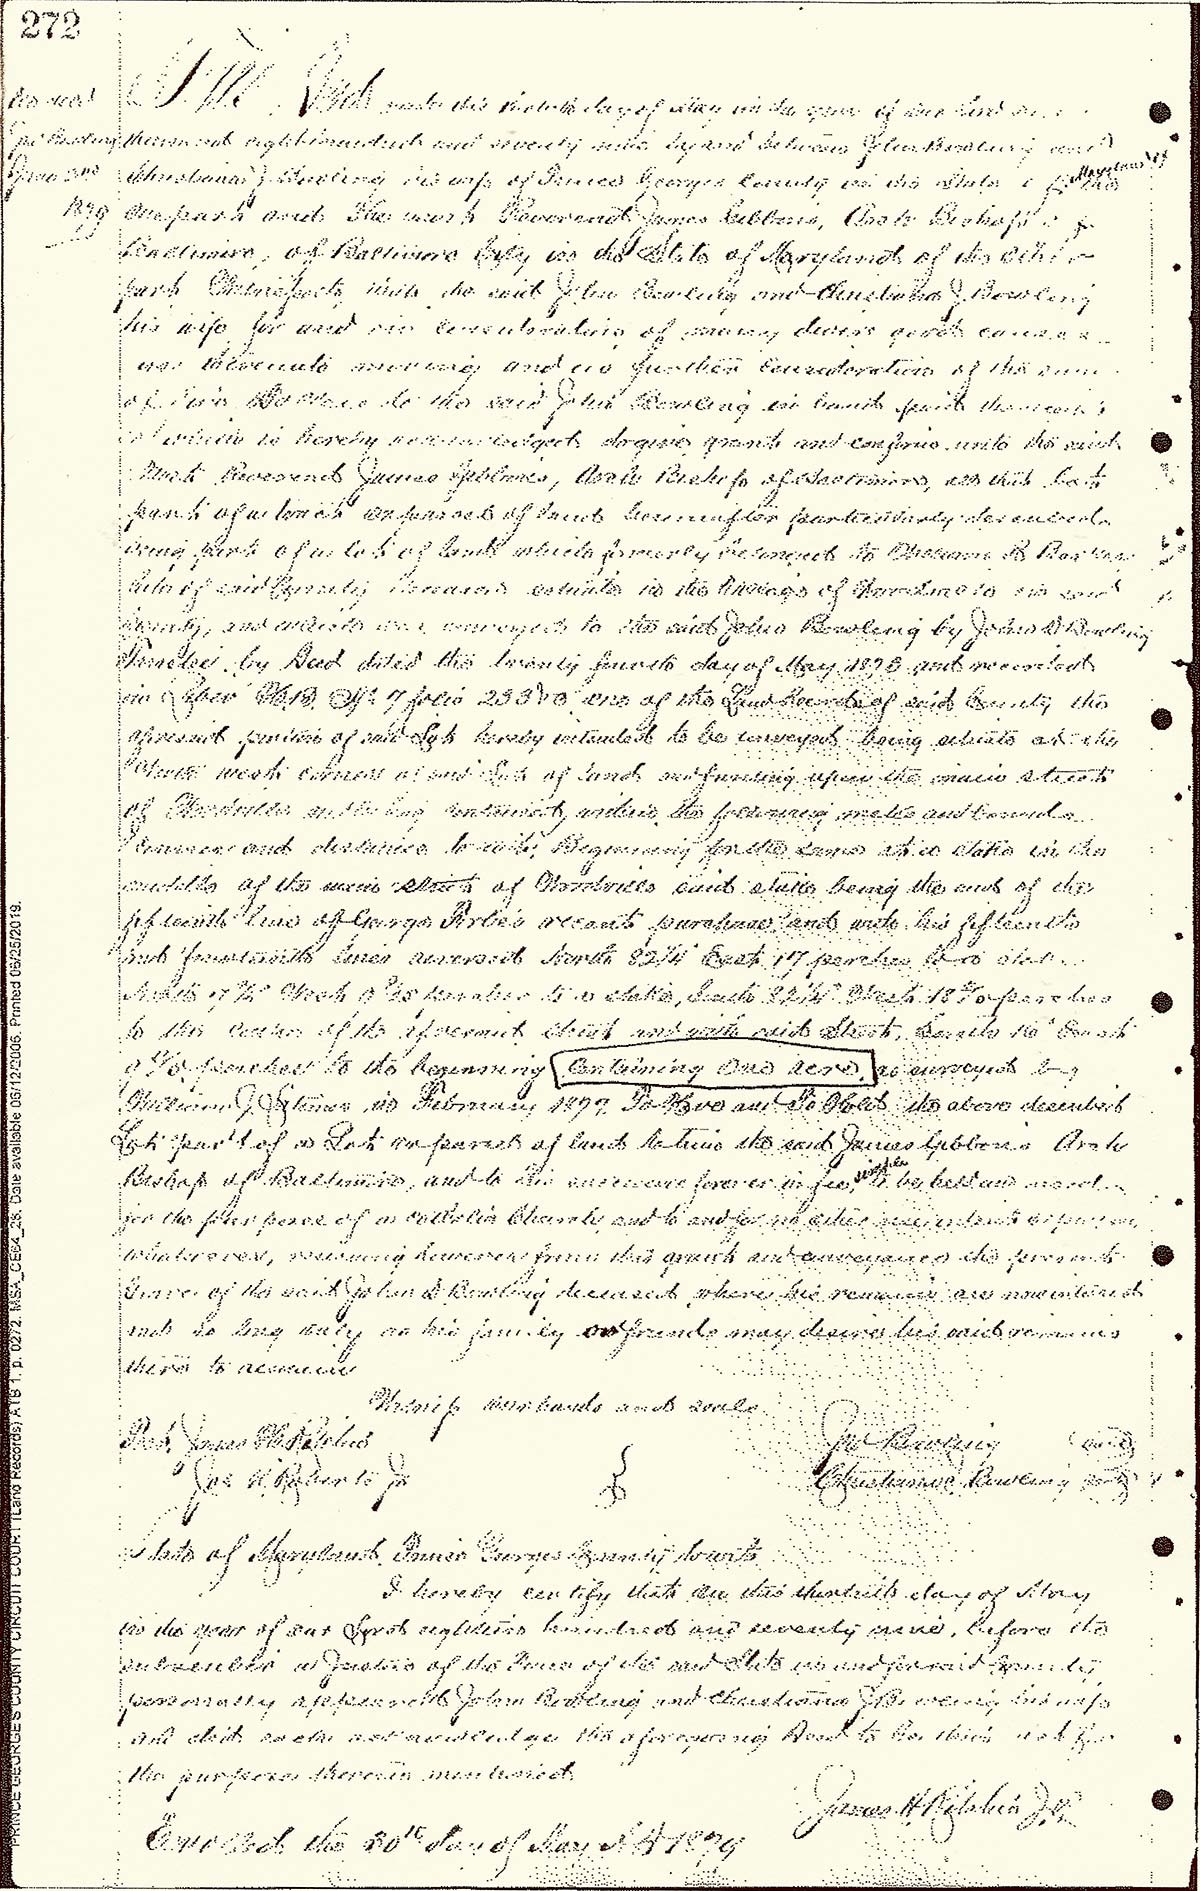 272
This Deed made this day of May in the year of our Lord one
thousand eight hundred and seventy nine by and between John Bowling and
Christiana J Bowling his wife of Prince Georges County in the State of Maryland of the
June 3rd
1879
one part and The most Reverend James Gibbons, Arch Bishop of
Baltimore, of Baltimore City in the State of Maryland of the other
part Witnesseth, that the said John Bowling and Christiana J. Bowling
his wife for and in consideration of many divers good causes
moving and in further consideration of the sum
of Five Dollars to the said John Bowling in hand paid the receipt
of which is hereby acknowledged, do give, grant and confirm unto the said
Most Reverend James Gibbons, Arch Bishop of Baltimore, all that lot
part of a tract or parcel of land hereinafter particularly described
being part of a lot of land which formerly belonged to William
late of said County deceased situate in the village of Woodville in said
County, and which was conveyed to the said John Bowling by John D Bowling
Trustee, by Deed dated the twenty fourth day of May 1878 and recorded
in Liber No. 7 folio 233 &c one of the Land Records of said County the
aforesaid portion of said Lot hereby intended to be conveyed being situate at the
west corner of said Lot of land and fronting upon the main street
of Woodville and being contained within the following metes and bounds
courses and distances to wit; Beginning for the same at a stake in the
middle of the main street of Woodville said stake being the end of the
fifteenth line of George recent purchase and with his fifteenth
and fourteenth lines reversed North 82¼ East 17 perches to a stake
West perches to a stake, South 82¼ West 18 perches
to the center of the aforesaid street and with said Street, South East
perches to the beginning Containing One acre, as surveyed by
William J. Latimer in February 1879 To Have and To Hold the above described
Lot part of a Lot or parcel of land to him the said James Gibbons Arch
Bishop of Baltimore, and to his successors forever in fee simple to be held and used
for the purpose of a Catholic Church, and to and for no other or purpose
whatsoever, reserving however from this grant and conveyance the present
Grave of the said John D Bowling deceased where his remains are now interred
and so long only as his family or friends may desire his said remains
there to remain
Witness our hands and seals
Test, James H. Ritchie Jno Bowling (seal)
Jos K. Roberts Jr Christiana J. Bowling (seal)
State of Maryland, Prince Georges County to wit:
I hereby certify that on this thirtieth day of May
in the year of our Lord eighteen hundred and seventy nine, before the
subscriber a Justice of the Peace of the said State in and for said County
personally appeared John Bowling and Christiana J Bowling his wife
and did each acknowledge the aforegoing Deed to be their act for
the purposes therein mentioned
James H. Ritchie J.P.
the 30th day of May A D 1879
PRINCE GEORGE'S COUNTY CIRCUIT COURT (Land Records) ATB 1, p. 0272, MSA_CE64_28. Date available 06/12/2006. Printed 06/25/2019.